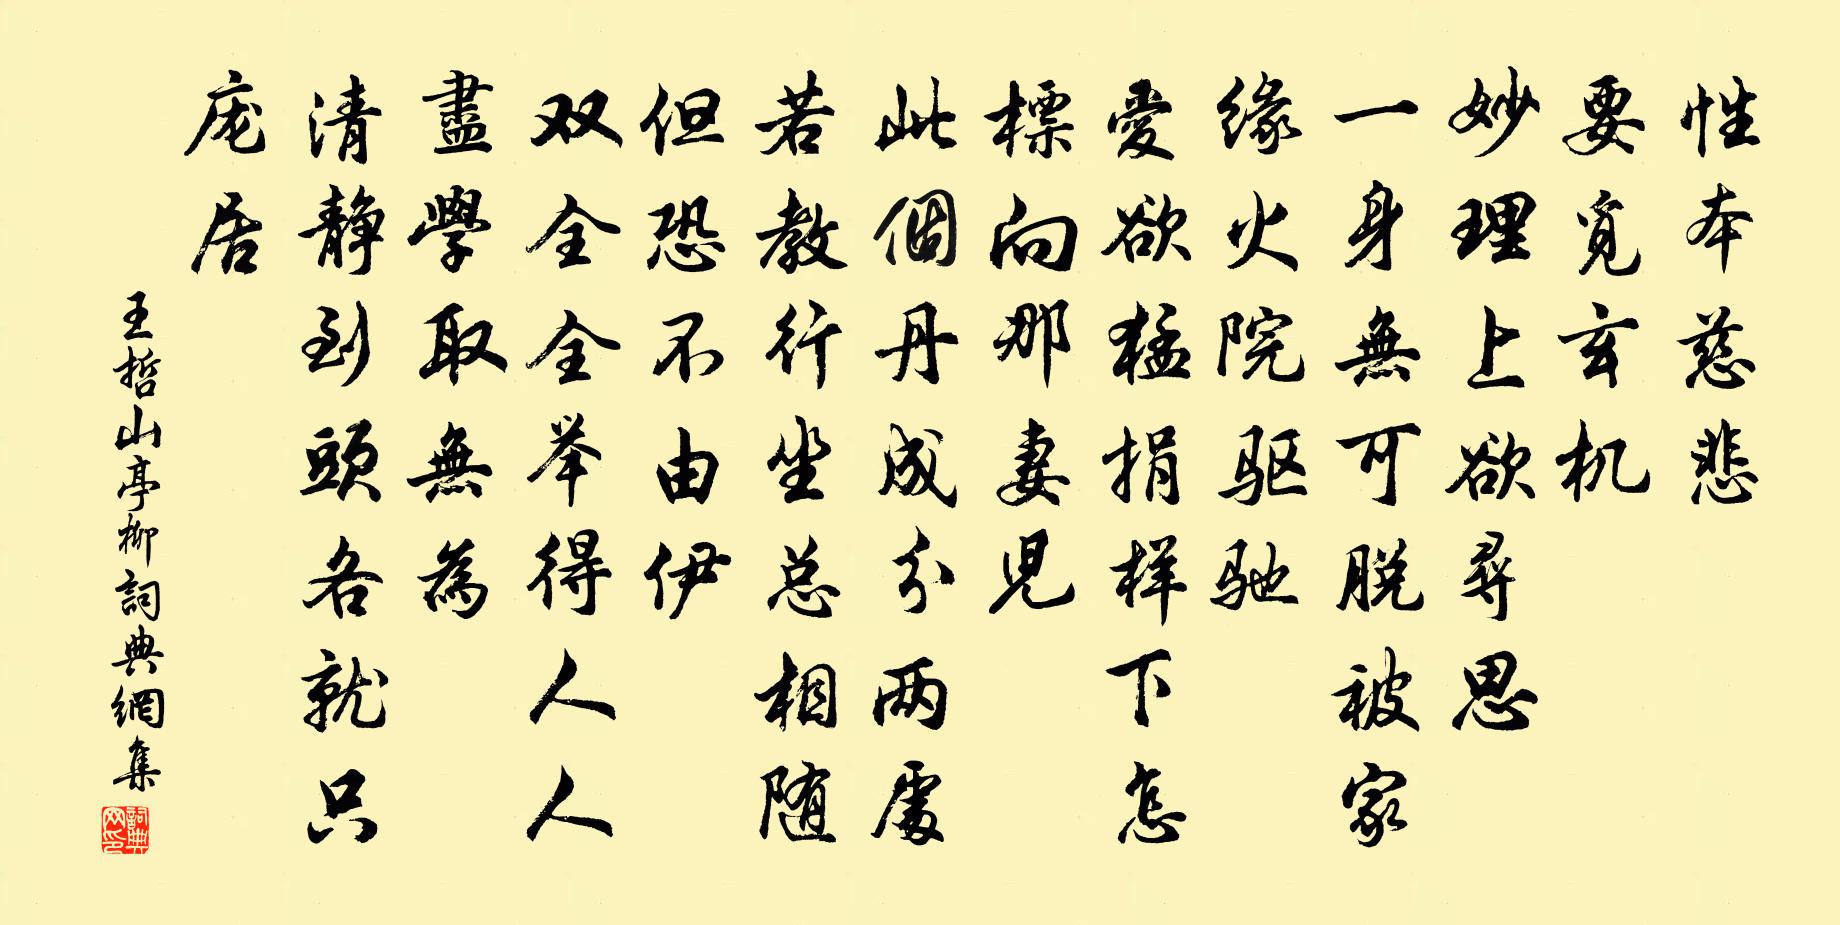 性本慈悲
要覓玄机
妙理上欲尋思
一身無可脱被家
缘火院驱驰
愛欲猛捐样下怎
標向那妻児
此個丹成分两處
若教行坐总相随
但恐不由伊
双全全举得人人
盡學取無為
清静到頭各就只
庞居
王哲山亭柳詞典網集
詞典网印